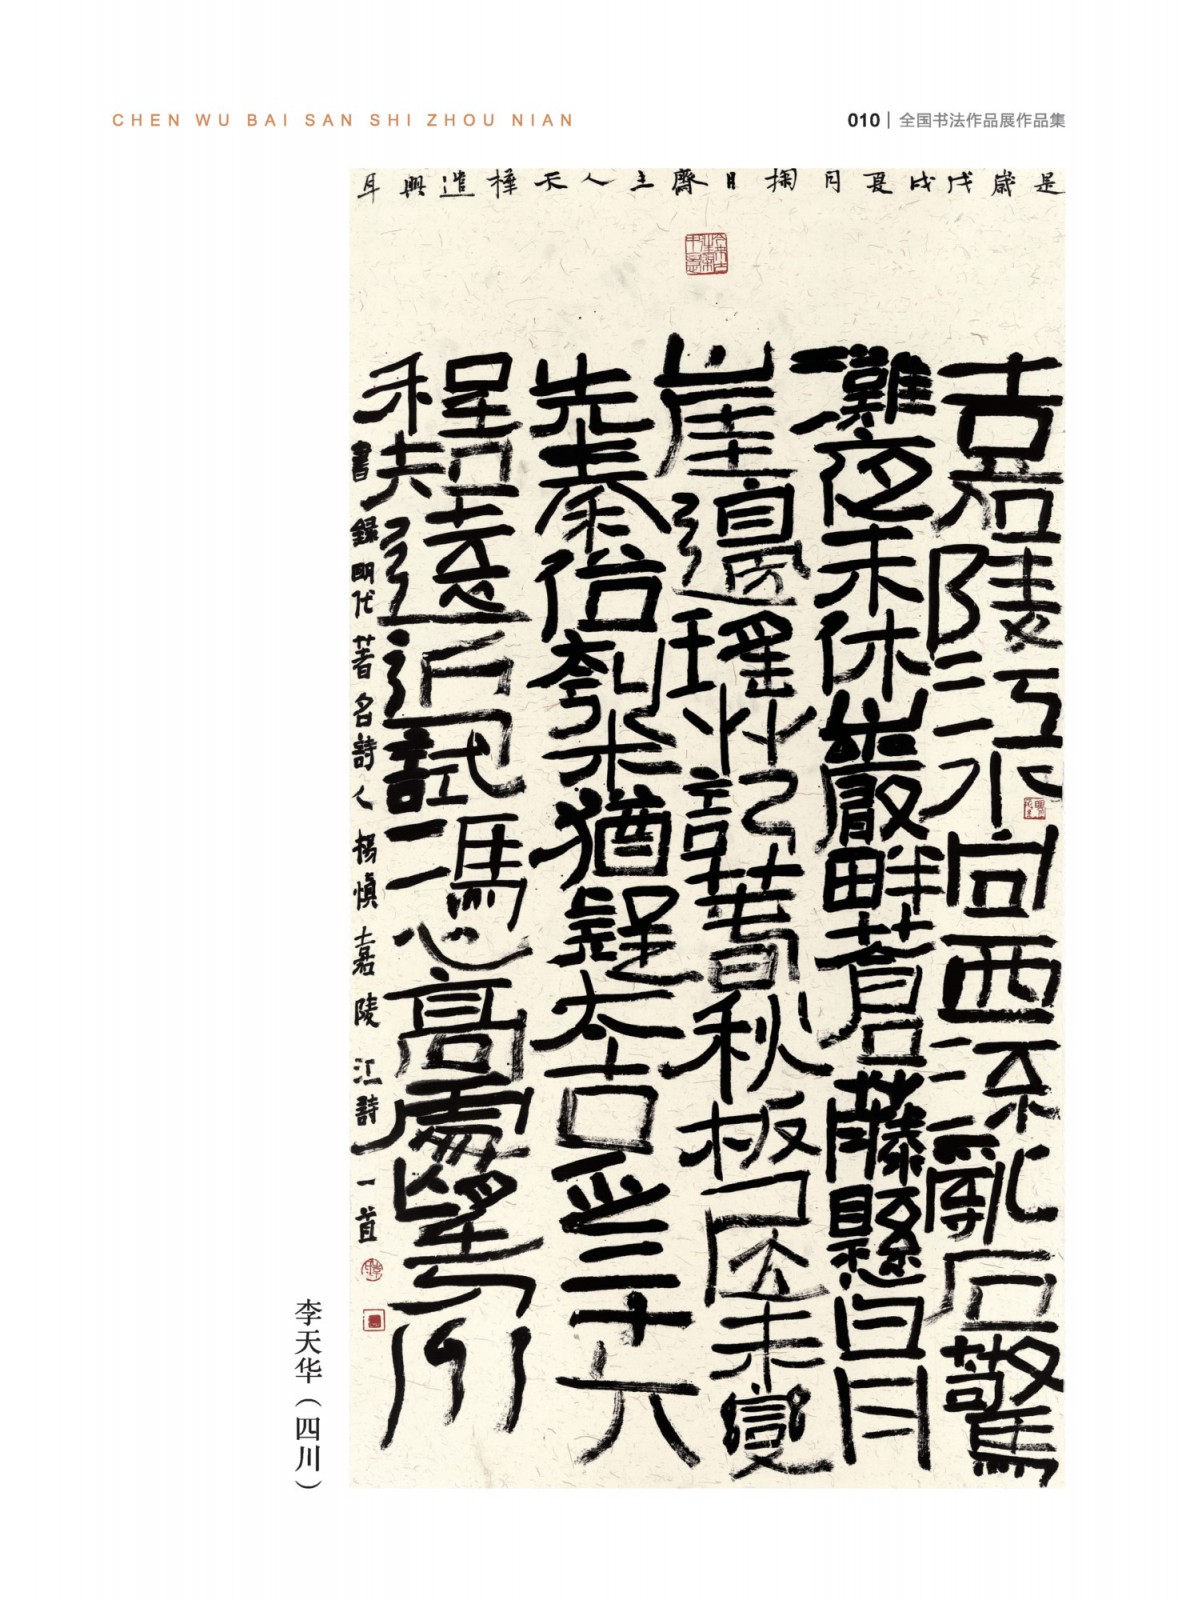 CHEN WU BAI SAN SHI ZHOU NIAN
010 | 全国书法作品展作品集
是歲戊戌夏月掬月齋主人天樺造興耳
嘉陵江水向西流亂石驚
灘夜未休巖畔蒼藤懸日月
崖邊瑤艸記萅秋板居未變
先秦俗刳木猶疑太古舟三十六
程知遠近試憑高處望刀州
書錄明代著名詩人楊慎嘉陵江詩一首
李天华（四川）